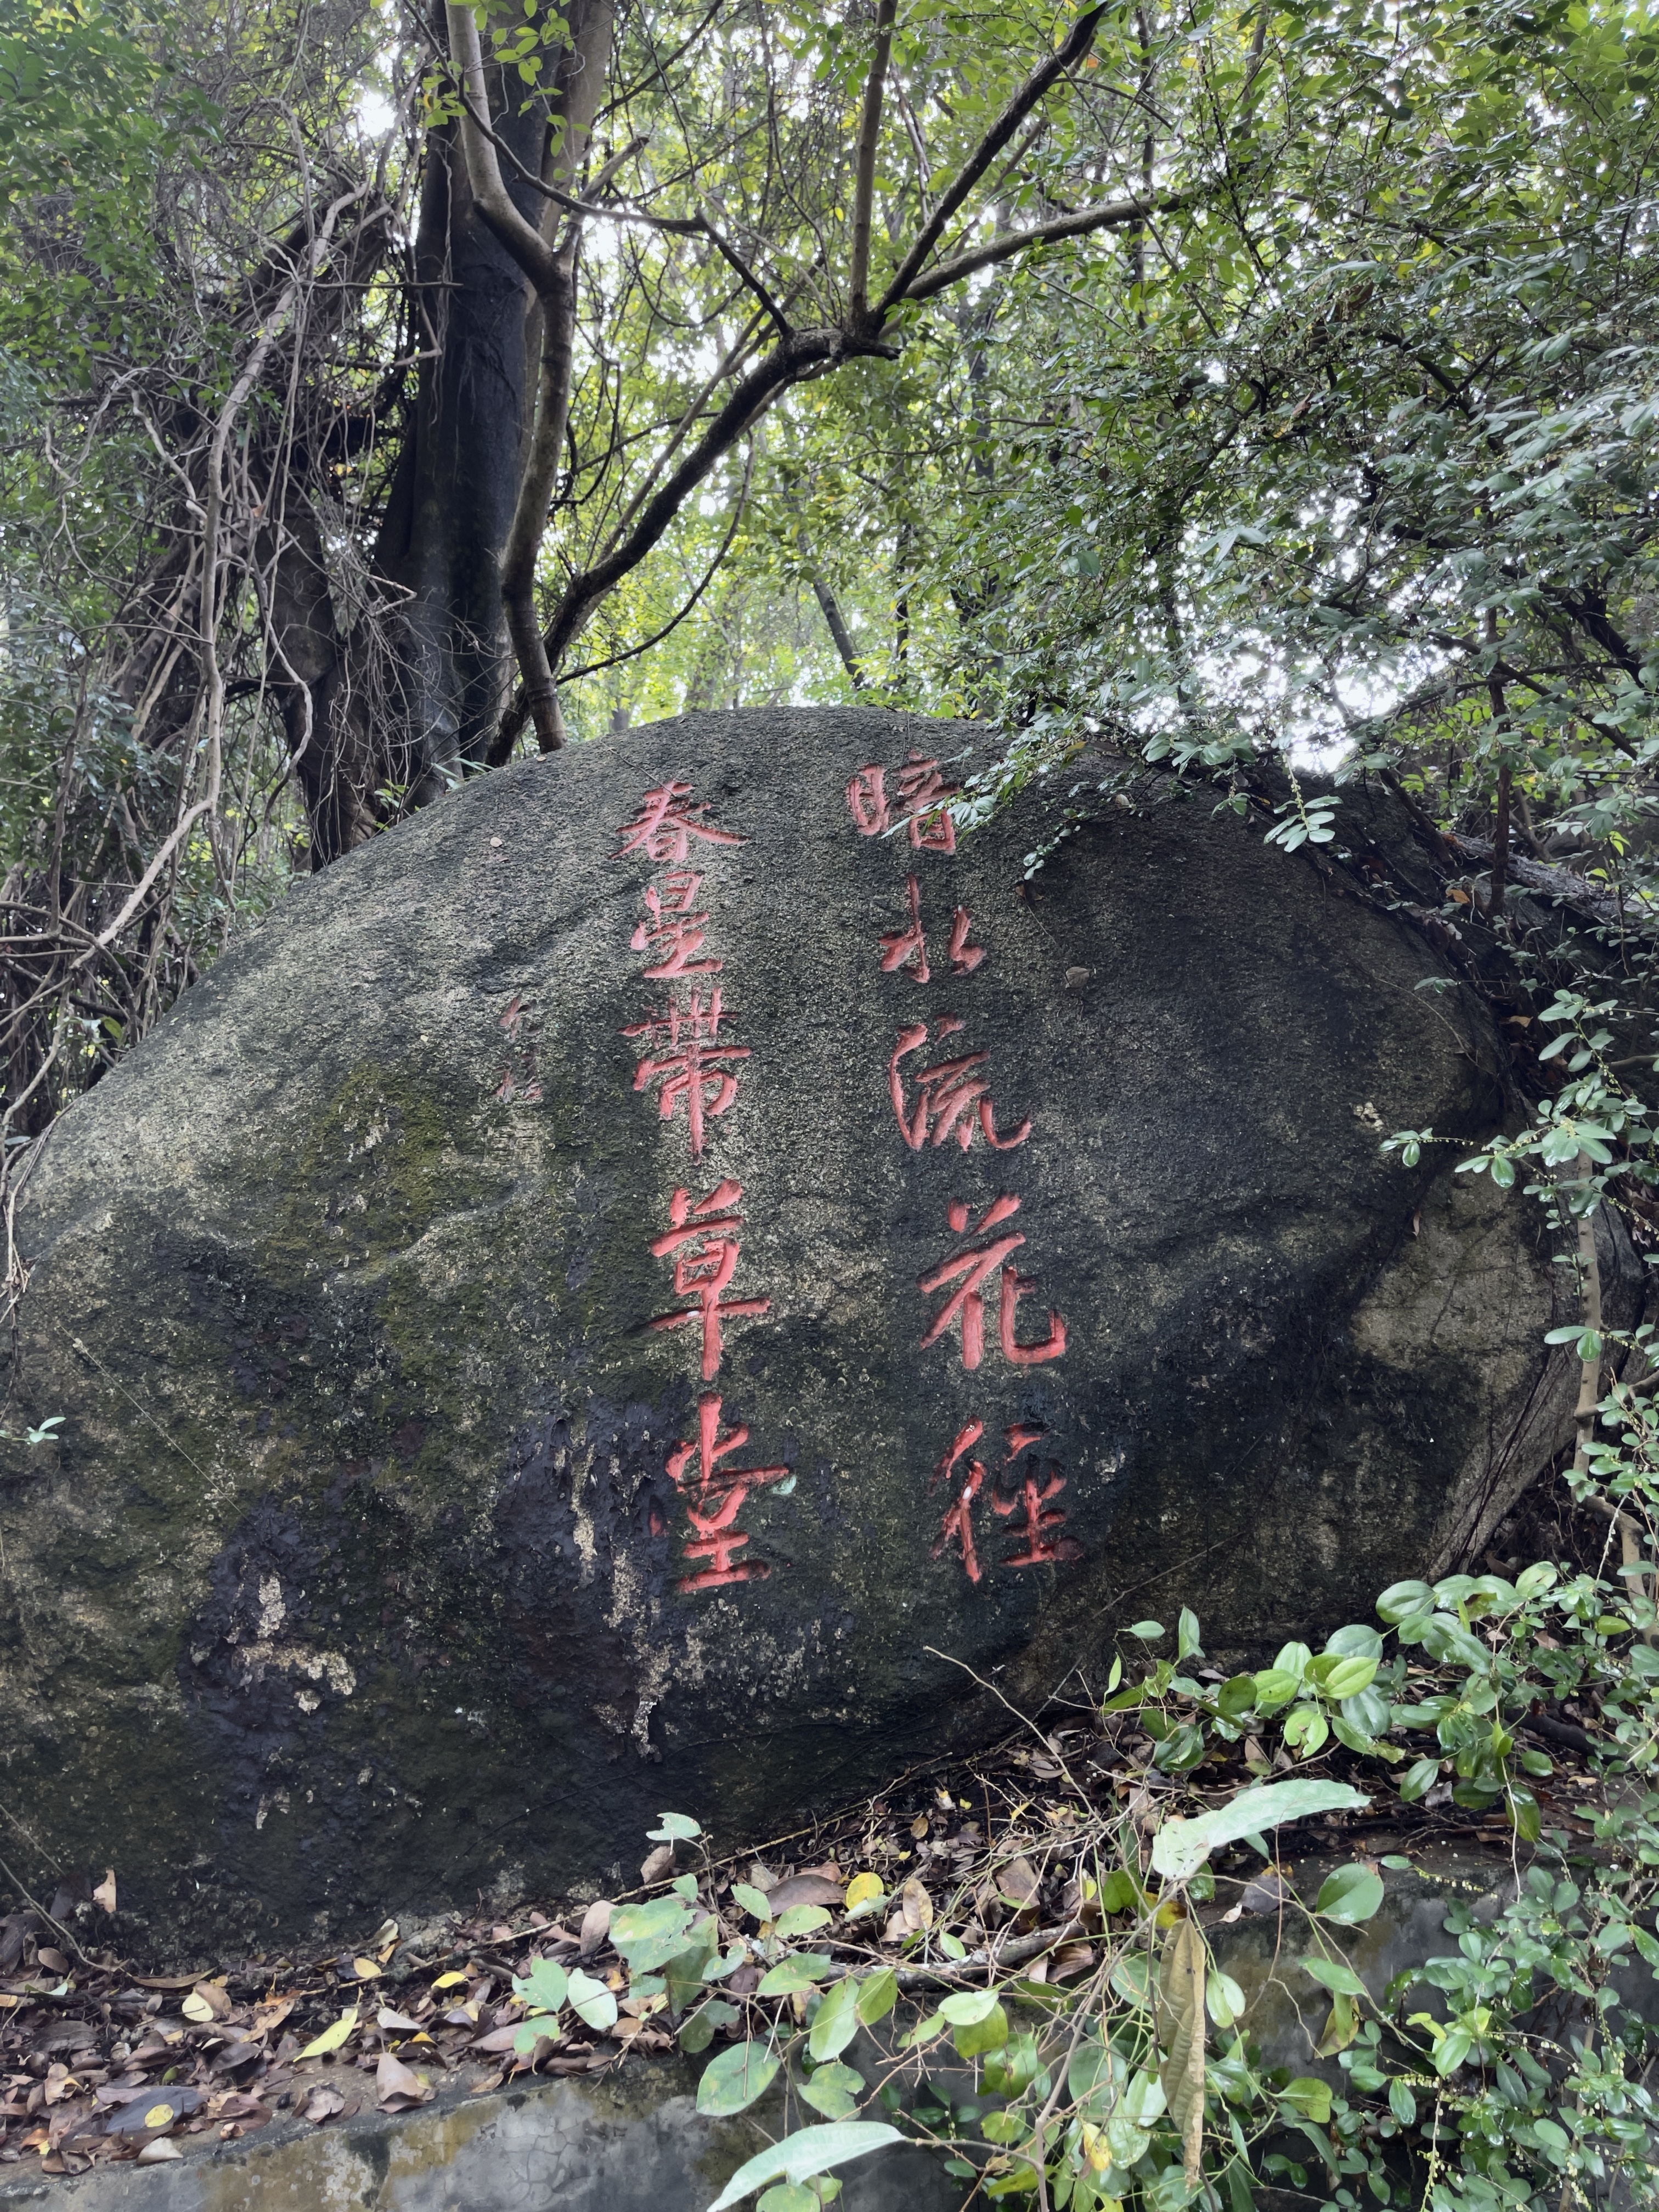 暗水流花径
春星帶草堂